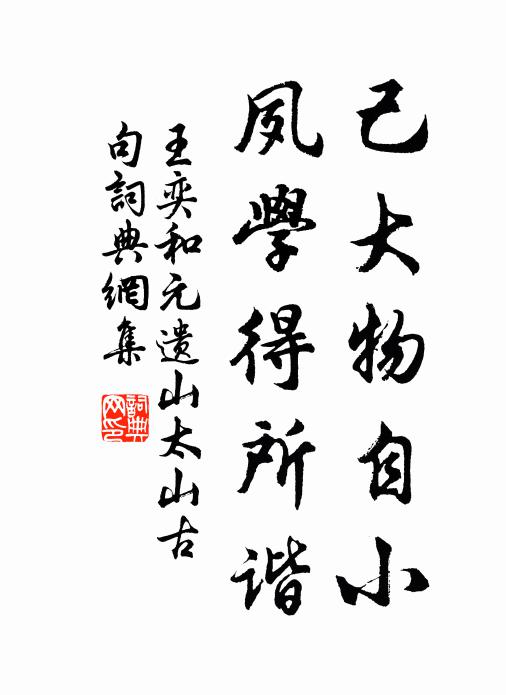 己大物自小
夙學得所谐
王奕和元遗山太山古
句詞典網集
詞典網印